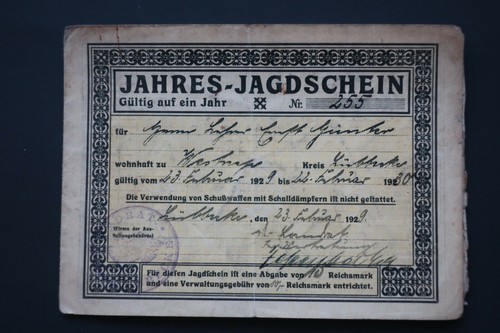 JAHRES-JAGDSCHEIN
Gültig auf ein Jahr Nr. 255
für Herrn Lehrer Ernst Günter
wohnhaft zu Kreis Lübbecke
gültig vom 23. Februar 1929 bis 22. Februar 1930
Die Verwendung von Schußwaffen mit Schalldämpfern ist nicht gestattet.
Lübbecke, den 23. Februar 1929.
Der Landrat
Für diesen Jagdschein ist eine Abgabe von 10 Reichsmark
und eine Verwaltungsgebühr von 10,- Reichsmark entrichtet.